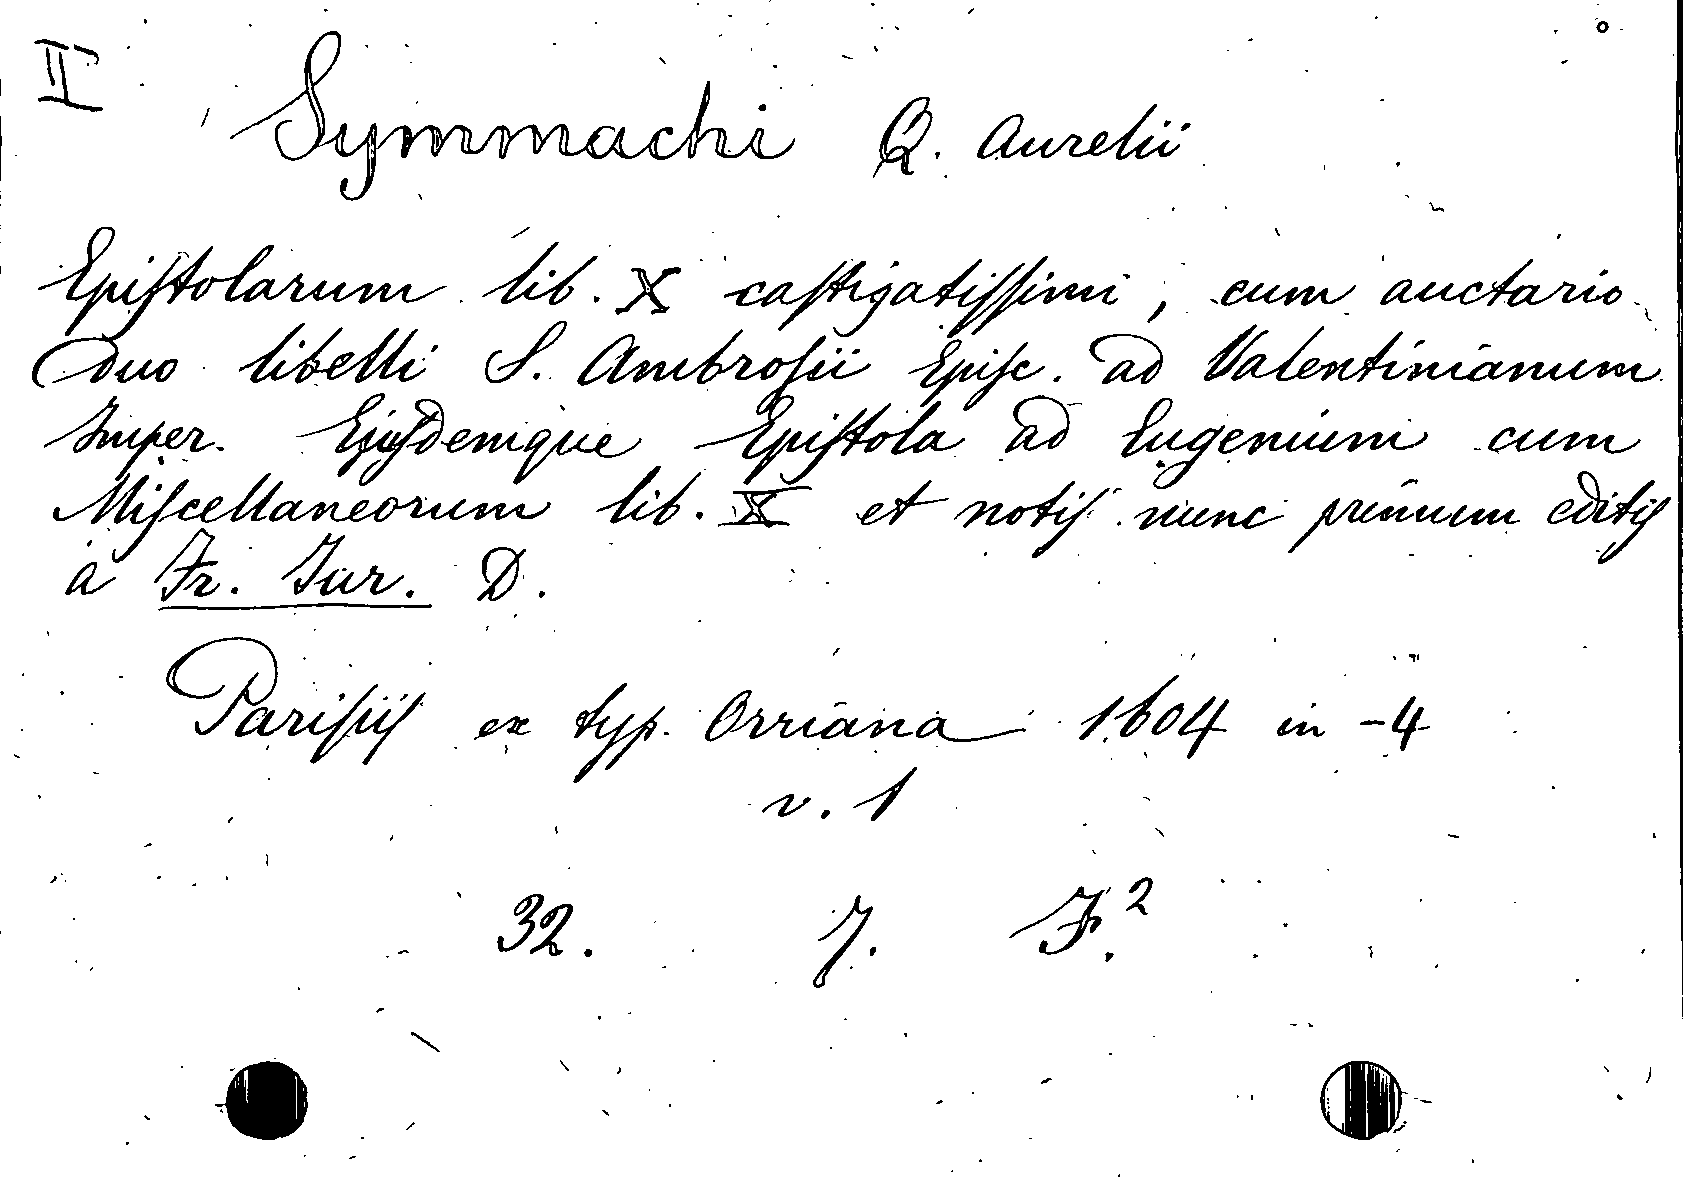 II
Symmachi Q. Aurelii
Epiſtolarum lib. X caſtigatiſſimi, cum auctario
Duo libelli S. Ambroſii Epiſc. ad Valentinianum
Imper. Ejuſdemque Epiſtola ad Eugenium cum
Miſcellaneorum lib. X et notiſ nunc primum editiſ
a Fr. Jur. D.
Pariſiiſ ex typ. Orriana 1604 in -4
v. 1
32. 7. F.²